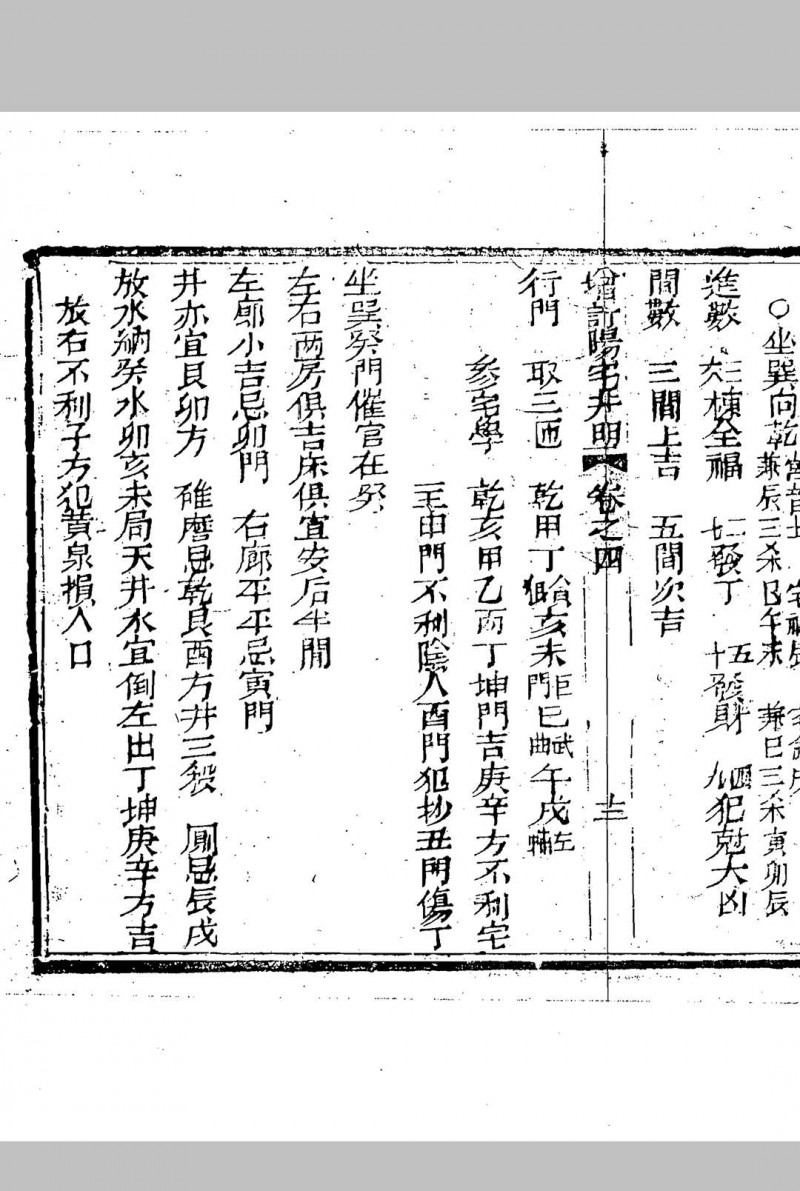 ○坐巽向乾 兼辰三杀巳午未 兼巳三杀寅卯辰
進數 三棟全福 二發丁 五發財 四犯尅大凶
間數 三間上吉 五間次吉
增訂陽宅井明 卷之四 十三
行門 取三 乾甲丁貪狼亥未門巨巳武曲午戌左輔
參宅學 乾亥甲乙丙丁坤門吉庚辛方不利宅
主申門不利陰人酉門犯抄丑門傷丁
坐巽癸門催官在癸
左右两房俱吉床俱宜安后半間
左廊小吉忌卯門 右廊平平忌寅門
井亦宜艮卯方 碓磨忌乾艮酉方井三殺 厠忌辰戌
放水納癸水卯亥未局天井水宜倒左出丁坤庚辛方吉
放右不利子方犯黄泉損人口